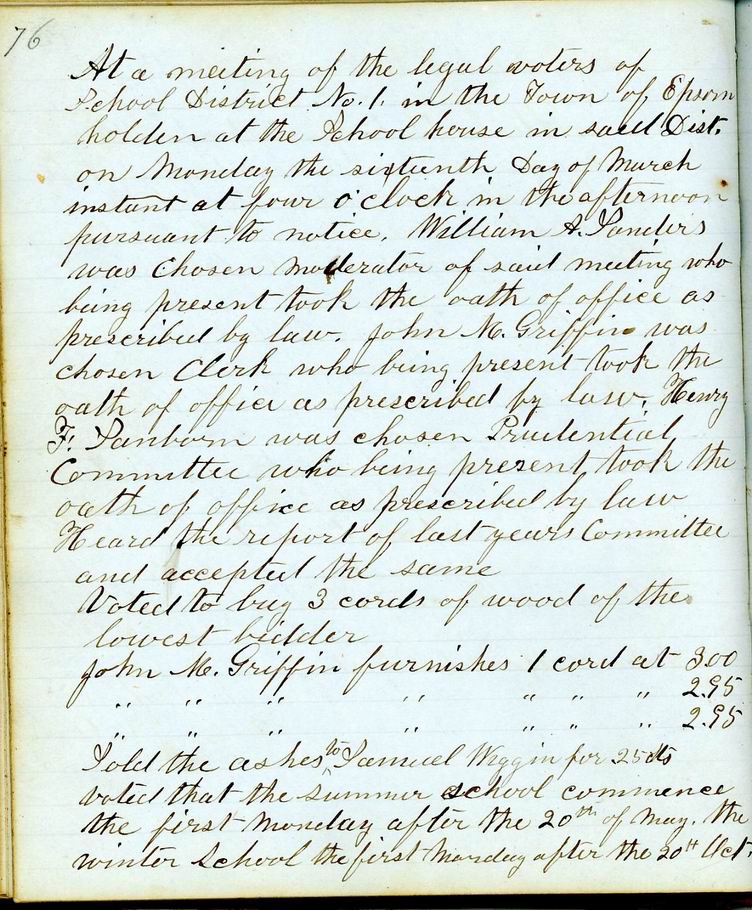 76
At a meeting of the legal voters of
School District No. 1. in the Town of Epsom
holden at the School house in said Dist.
on Monday the sixteenth Day of March
instant at four o'clock in the afternoon
pursuant to notice. William A. Sanders
was chosen moderator of said meeting who
being present took the oath of office as
prescribed by law. John M. Griffin was
chosen Clerk who being present took the
oath of office as prescribed by law. Henry
F. Sanborn was chosen Prudential
Committee who being present took the
oath of office as prescribed by law
Heard the report of last years Committee
and accepted the same
Voted to buy 3 cords of wood of the
lowest bidder
John M. Griffin furnishes 1 cord at 3.00
" " " " " " " 2.95
" " " " " " " 2.95
Sold the ashes to Samuel Wiggin for 25 cts
voted that the summer school commence
the first Monday after the 20th of May. the
winter School the first Monday after the 20th Oct.